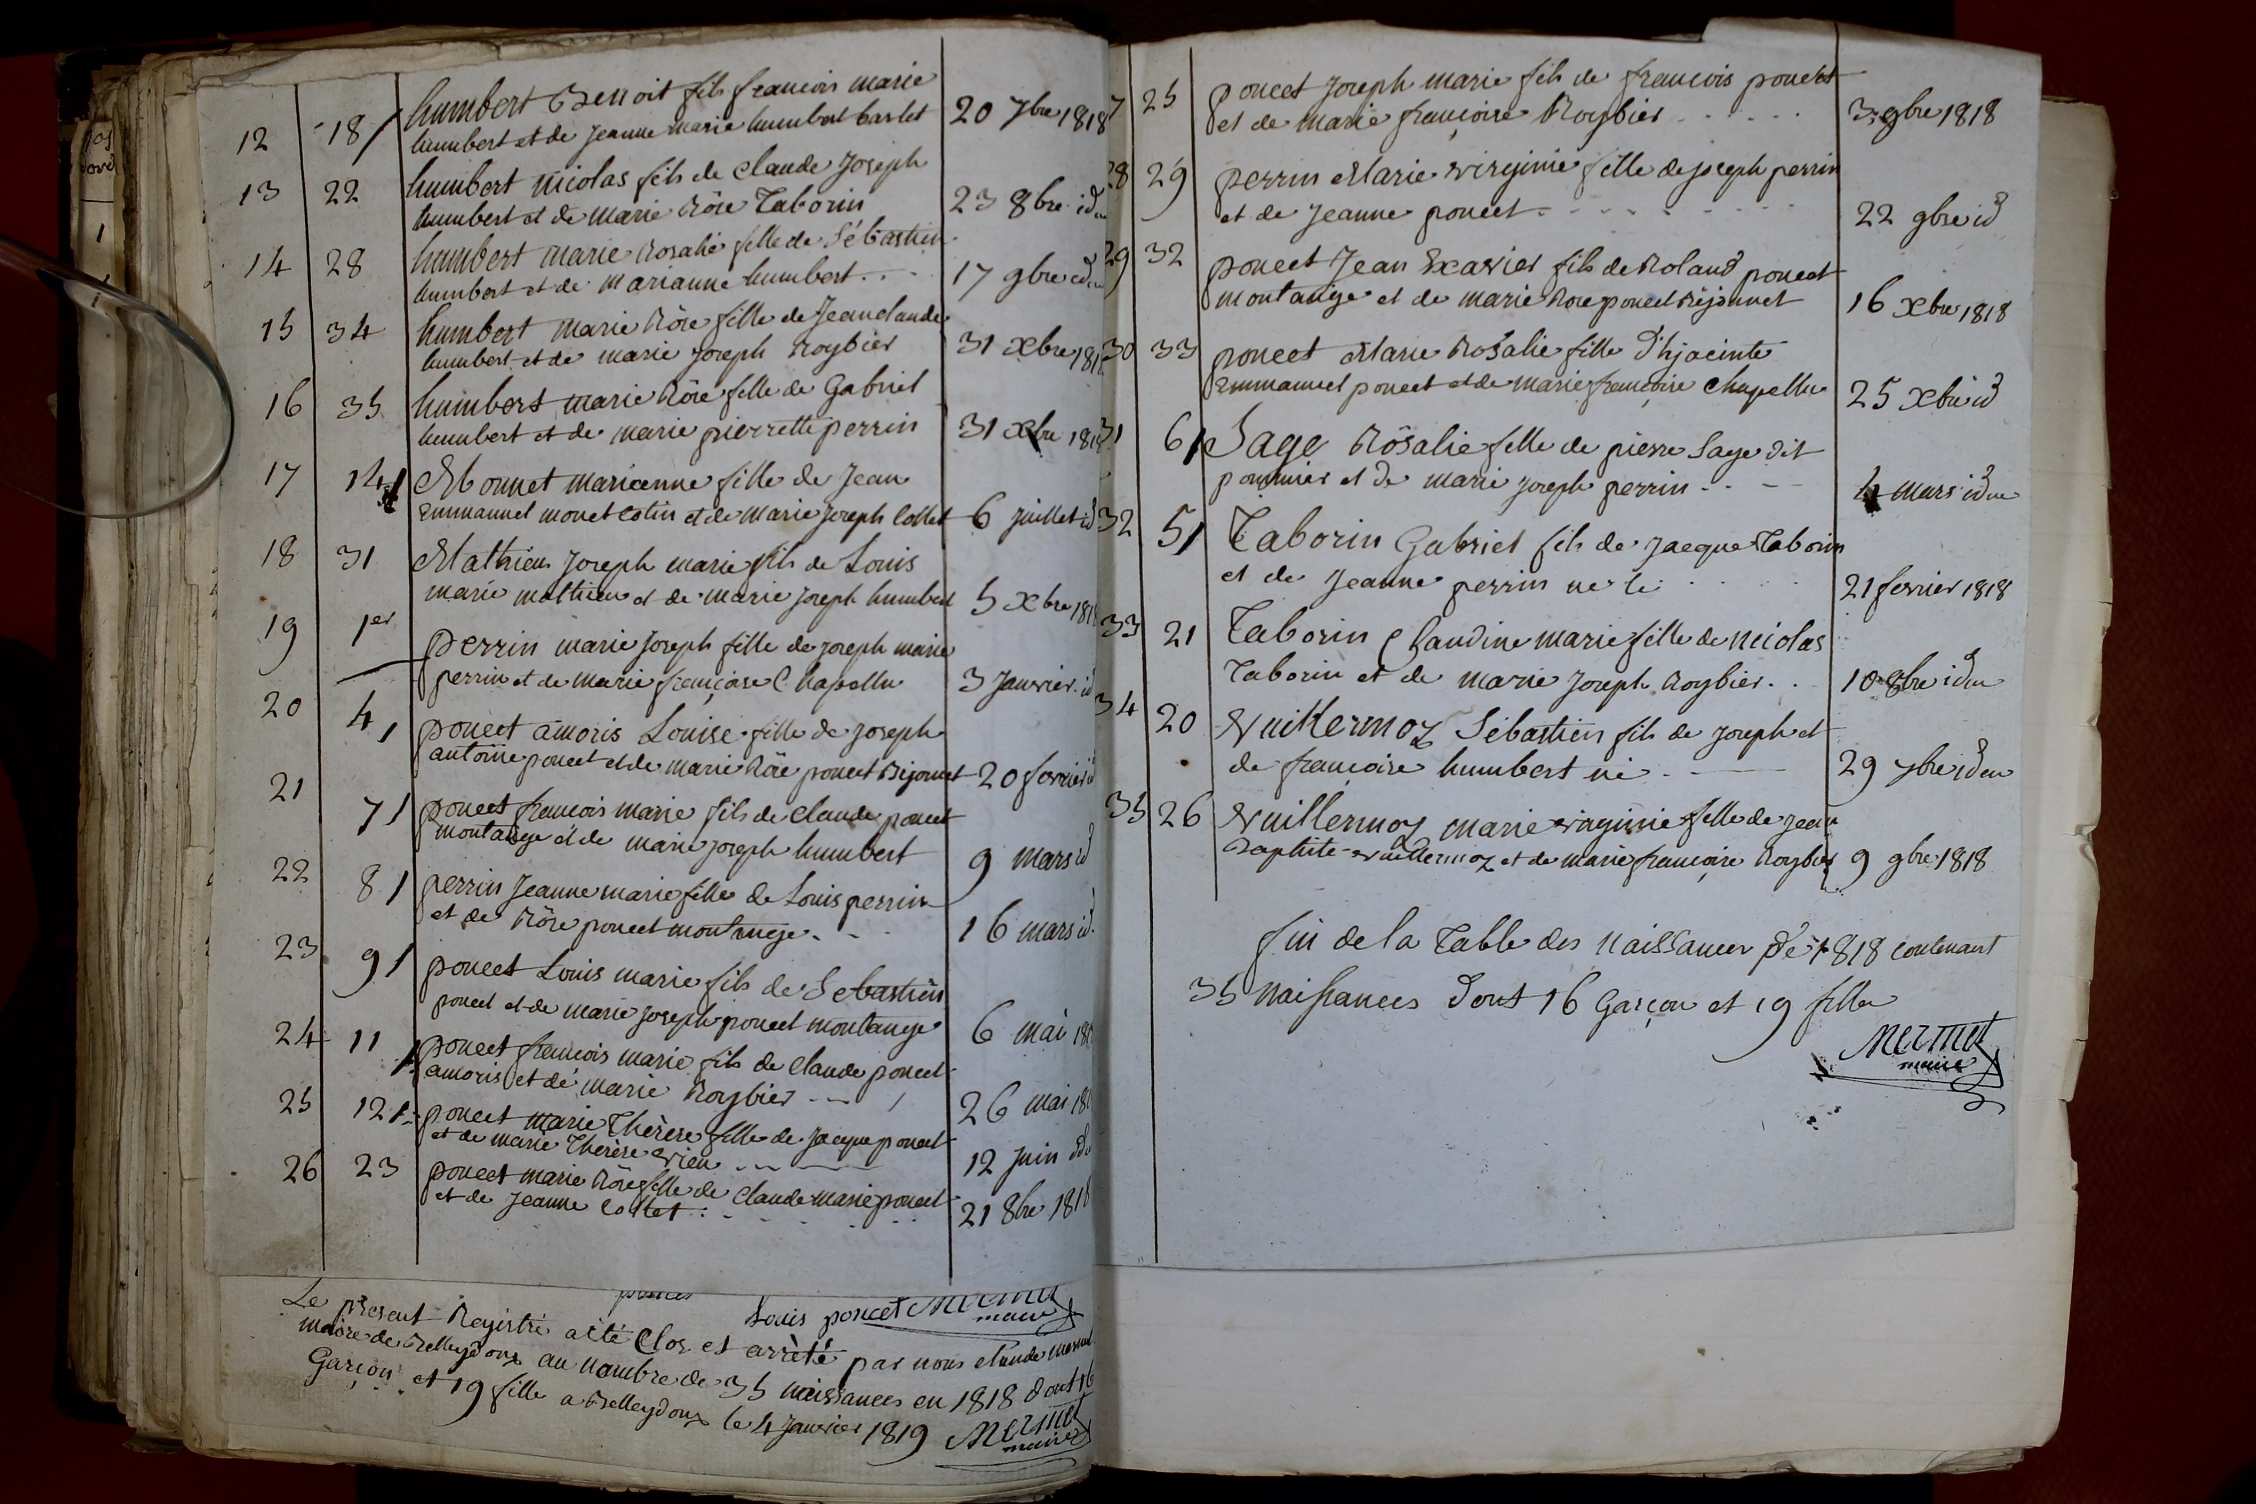 12 18/ humbert Benoit fils francois marie
humbert et de Jeanne marie humbert barlet 20 7bre 1818
13 22 humbert nicolas fils de Claude Joseph
humbert et de Marie Rôse Taborin 23 8bre id
14 28 humbert Marie Rosalie fille de Sébastien
humbert et de Marianne humbert . . . 17 9bre id
15 34 humbert Marie Rôse fille de Jean claude
humbert et de marie Joseph Roybier 31 xbre 181
16 35 humbert marie Rôse fille de Gabriel
humbert et de marie pierrette perrin 31 xbre 1818
17 14/ Monnet marianne fille de Jean
Emmanuel monet Colin et de Marie Joseph Collet 6 Juillet id
18 31 Mathieu Joseph marie fils de Louis
marie mathieu et de marie Joseph humbert 5 xbre 181
19 1er perrin marie Joseph fille de Joseph marie
perrin et de marie françoise Chapellu 3 Janvier id
20 4/ poncet amoris Louise fille de Joseph
antoine poncet et de marie Rôse poncet Bijonnet 20 fevrier id
21 7/ poncet francois marie fils de Claude poncet
montange et de marie Joseph humbert 9 mars id
22 8/ perrin Jeanne marie fille de Louis perrin
et de Rôse poncet montange . . . 16 mars id
23 9/ poncet Louis marie fils de Sebastien
poncet et de marie Joseph poncet montange 6 mai 181
24 11/ poncet francois marie fils de Claude poncet
amoris et de marie Roybier 26 mai 181
25 12/ poncet Marie Thérèse fille de Jacque poncet
et de marie Thérèse 12 Juin id
26 23 poncet marie Rôse fille de Claude marie poncet
et de Jeanne Collet . . . 21 8bre 1818
poncet
Louis poncet Mermet
maire
Le present Registre a été Clos et arrêté par nous Claude mermet
maire de Belleydoux au nombre de 35 naissances en 1818 dont 16
Garçon et 19 fille a Belleydoux le 4 Janvier 1819 Mermet
maire
7 25 poncet Joseph marie fils de francois poncet
et de marie françoise Roybier . . . 3 9bre 1818
28 29 perrin Marie virginie fille de Joseph perrin
et de Jeanne poncet . . . 22 9bre id
29 32 poncet Jean Exavier fils de Roland poncet
montange et de marie Rose poncet Bijonnet 16 xbre 1818
30 33 poncet Marie Rosalie fille d'hjacinte
Emmanuel poncet et de marie françoise Chapellu 25 xbre id
31 6/ Sage Rôsalie fille de pierre Sage dit
pommier et de marie Joseph perrin . . . 4 mars idem
32 5/ Taborin Gabriel fils de Jacque Taborin
et de Jeanne perrin ne le . . . 21 fevrier 1818
33 21 Taborin Claudine marie fille de nicolas
Taborin et de marie Joseph Roybier . . 10 8bre idem
34 20 Vuillermoz Sébastien fils de Joseph et
de françoise humbert né 29 7bre idem
35 26 Vuillermoz marie virginie fille de Jean
Baptiste vuillermoz et de marie françoise Roybier 9 9bre 1818
fin de la Table des Naissances de 1818 contenant
35 Naissances dont 16 Garçon et 19 fille
Mermet
maire